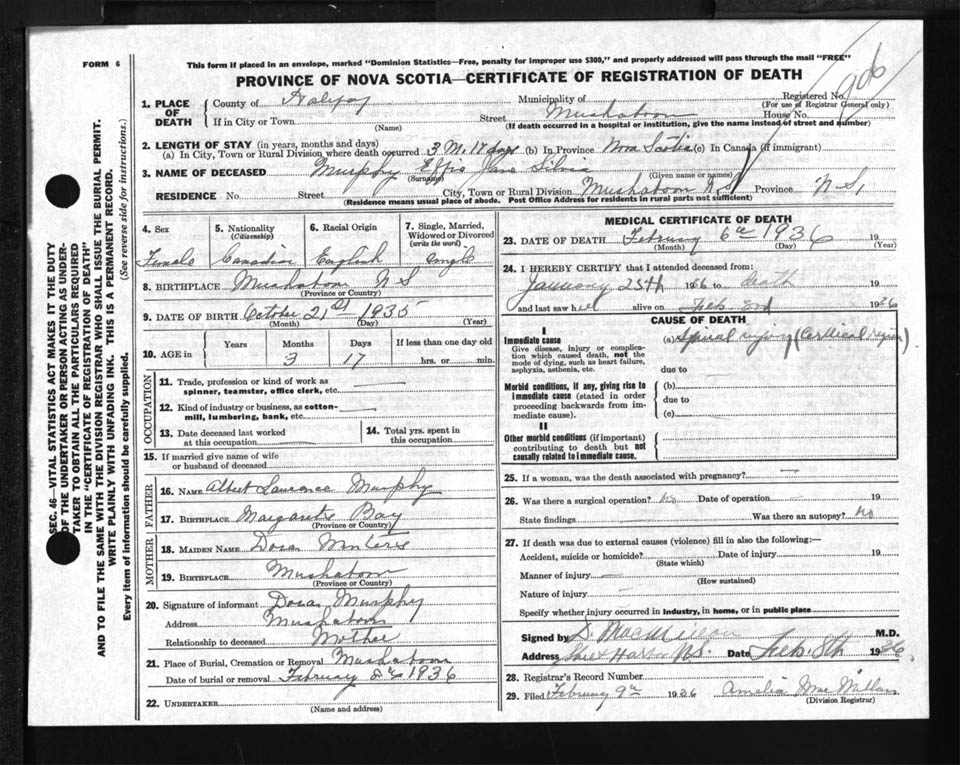 FORM 6
This form if placed in an envelope, marked "Dominion Statistics—Free, penalty for improper use $300," and properly addressed will pass through the mail "FREE"
PROVINCE OF NOVA SCOTIA—CERTIFICATE OF REGISTRATION OF DEATH
SEC. 46—VITAL STATISTICS ACT MAKES IT THE DUTY
OF THE UNDERTAKER OR PERSON ACTING AS UNDER-
TAKER TO OBTAIN ALL THE PARTICULARS REQUIRED
IN THE "CERTIFICATE OF REGISTRATION OF DEATH"
AND TO FILE THE SAME WITH THE DIVISION REGISTRAR WHO SHALL ISSUE THE BURIAL PERMIT.
WRITE PLAINLY WITH UNFADING INK. THIS IS A PERMANENT RECORD.
Every item of information should be carefully supplied. (See reverse side for instructions.)
1. PLACE OF DEATH County of Halifax Municipality of Registered No.
(For use of Registrar General only)
If in City or Town Street Mushaboom House No.
(Name) (If death occurred in a hospital or institution, give the name instead of street and number)
2. LENGTH OF STAY (in years, months and days)
(a) In City, Town or Rural Division where death occurred 3 M. 17 days (b) In Province Nova Scotia (c) In Canada (if immigrant)
3. NAME OF DECEASED Murphy Effie Jane Silvia
(Surname) (Given name or names)
RESIDENCE No Street City, Town or Rural Division Mushaboom N S Province N S.
(Residence means usual place of abode. Post Office Address for residents in rural parts not sufficient)
4. Sex 5. Nationality (Citizenship) 6. Racial Origin 7. Single, Married, Widowed or Divorced (write the word)
Female Canadian English single
8. BIRTHPLACE Mushaboom N S
(Province or Country)
9. DATE OF BIRTH October 21st 1935
(Month) (Day) (Year)
10. AGE in Years Months Days If less than one day old
3 17 hrs. or min.
OCCUPATION
11. Trade, profession or kind of work as spinner, teamster, office clerk, etc.
12. Kind of industry or business, as cotton-mill, lumbering, bank, etc.
13. Date deceased last worked at this occupation
14. Total yrs. spent in this occupation
15. If married give name of wife or husband of deceased
FATHER
16. NAME Albert Laurence Murphy
17. BIRTHPLACE Margarets Bay
(Province or Country)
MOTHER
18. MAIDEN NAME Doras
19. BIRTHPLACE Mushaboom
(Province or Country)
20. Signature of informant Doras Murphy
Address Mushaboom
Relationship to deceased Mother
21. Place of Burial, Cremation or Removal Mushaboom
Date of burial or removal February 1936
22. UNDERTAKER
(Name and address)
MEDICAL CERTIFICATE OF DEATH
23. DATE OF DEATH February 6th 1936 19
(Month) (Day) (Year)
24. I HEREBY CERTIFY that I attended deceased from:
January 25th 1936 to death
and last saw her alive on Feb 1936
CAUSE OF DEATH
I
Immediate cause
Give disease, injury or complication which caused death, not the mode of dying, such as heart failure, asphyxia, asthenia, etc.
(a) Spinal injury (Cervical region)
due to
Morbid conditions, if any, giving rise to immediate cause (stated in order proceeding backwards from immediate cause).
(b)
due to
(c)
II
Other morbid conditions (if important) contributing to death but not causally related to immediate cause.
25. If a woman, was the death associated with pregnancy?
26. Was there a surgical operation? No Date of operation 19
State findings Was there an autopsy? No
27. If death was due to external causes (violence) fill in also the following:—
Accident, suicide or homicide? Date of injury 19
(State which)
Manner of injury
(How sustained)
Nature of injury
Specify whether injury occurred in industry, in home, or in public place
Signed by D. MacMillan M.D.
Address Sheet Harbor N.S. Date Feb. 8th 1936
28. Registrar's Record Number
29. Filed February 9th 1936 Amelia MacMillan
(Division Registrar)